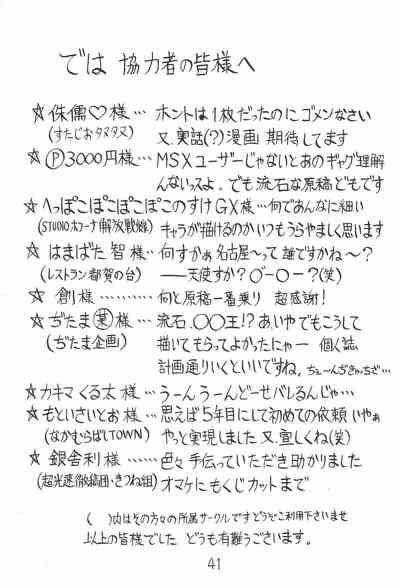 では 協力者の皆様へ
☆ 侏儒♡様… ホントは1枚だったのにゴメンなさい
(すたじおタヌタヌ) 又実話(?)漫画 期待してます
☆ Ⓟ3000円様… MSXユーザーじゃないとあのギャグ理解
んないっスよ。でも流石な原稿どもです
☆へっぽこぽこぽこぽこのすけGX様…何であんなに細い
(STUDIOホナーナ解放戦線) キャラが描けるのかいつもうらやましく思います
☆ はまばた 智 様… 何すかぁ名古屋〜って誰ですかね〜?
(レストラン都賀の台) ――天使すか? O-O-?(笑)
☆ 創 様……… 何と原稿一番乗り 超感謝!
☆ ぢたま㊛様… 流石、〇〇王!? あ、いやでもこうして
(ぢたま企画) 描いてもらってよかったにゃー 個人誌
計画通りいくといいですね。ちぇ〜んぢきゃっちざ…
☆カキマくる太様… うーんうーんどーせバレるんじゃ…
☆もといさいとお様… 思えば5年目にして初めての依頼 いやぁ
(なかむらばしTOWN) やっと実現しました 又、宜しくね(笑)
☆ 銀舎利様…… 色々手伝っていただき助かりました
オマケにもくじカットまで
( )内はその方々の所属サークルですどうぞご利用下さいませ
以上の皆様でした どうも有難うございます。
41